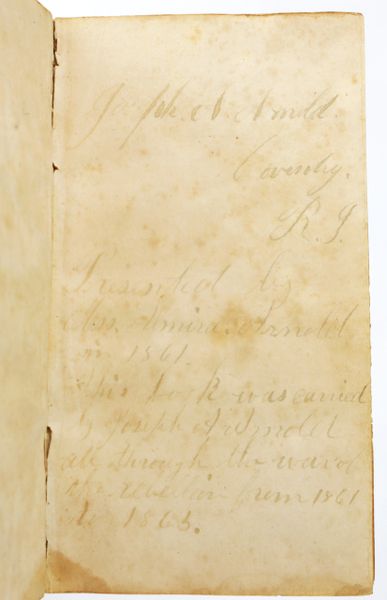 Joseph A Arnold.
Coventry.
R. I.
Presented by
Mrs. Almira Arnold
in 1861
This book was carried
by Joseph A Arnold
all through the war of
the rebellion from 1861
to 1865.